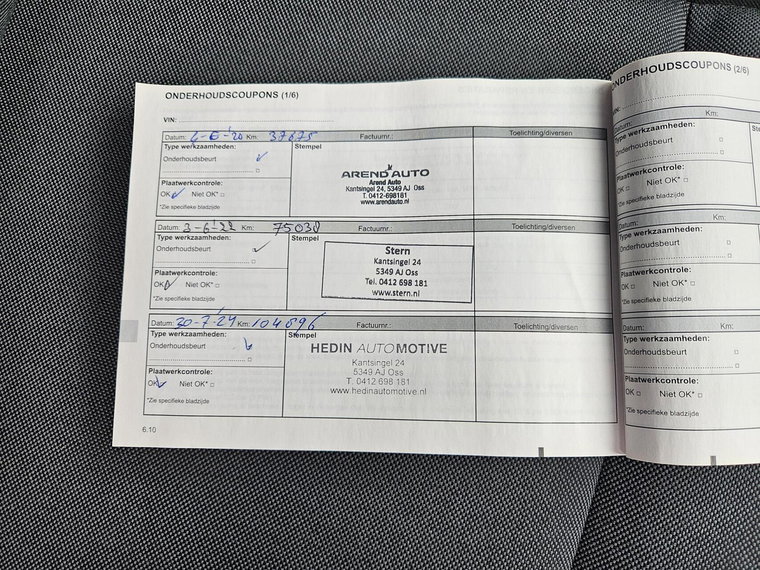 ONDERHOUDSCOUPONS (1/6)
VIN:
Datum: 2-6-'20 Km: 37875 Factuurnr.: Toelichting/diversen
Type werkzaamheden: Stempel
Onderhoudsbeurt
AREND AUTO
Arend Auto
Kantsingel 24, 5349 AJ Oss
T. 0412-698181
www.arendauto.nl
Plaatwerkcontrole:
OK Niet OK*
*Zie specifieke bladzijde
Datum: 3-6-'22 Km: 75038 Factuurnr.: Toelichting/diversen
Type werkzaamheden: Stempel
Onderhoudsbeurt
Stern
Kantsingel 24
5349 AJ Oss
Tel. 0412 698 181
www.stern.nl
Plaatwerkcontrole:
OK Niet OK*
*Zie specifieke bladzijde
Datum: 30-7-'24 Km: 104696 Factuurnr.: Toelichting/diversen
Type werkzaamheden: Stempel
Onderhoudsbeurt
HEDIN AUTOMOTIVE
Kantsingel 24
5349 AJ Oss
T. 0412 698 181
www.hedinautomotive.nl
Plaatwerkcontrole:
OK Niet OK*
*Zie specifieke bladzijde
6.10
ONDERHOUDSCOUPONS (2/6)
VIN:
Datum: Km:
Type werkzaamheden:
Onderhoudsbeurt
Plaatwerkcontrole:
OK Niet OK*
*Zie specifieke bladzijde
Datum: Km:
Type werkzaamheden:
Onderhoudsbeurt
Plaatwerkcontrole:
OK Niet OK*
*Zie specifieke bladzijde
Datum: Km:
Type werkzaamheden:
Onderhoudsbeurt
Plaatwerkcontrole:
OK Niet OK*
*Zie specifieke bladzijde